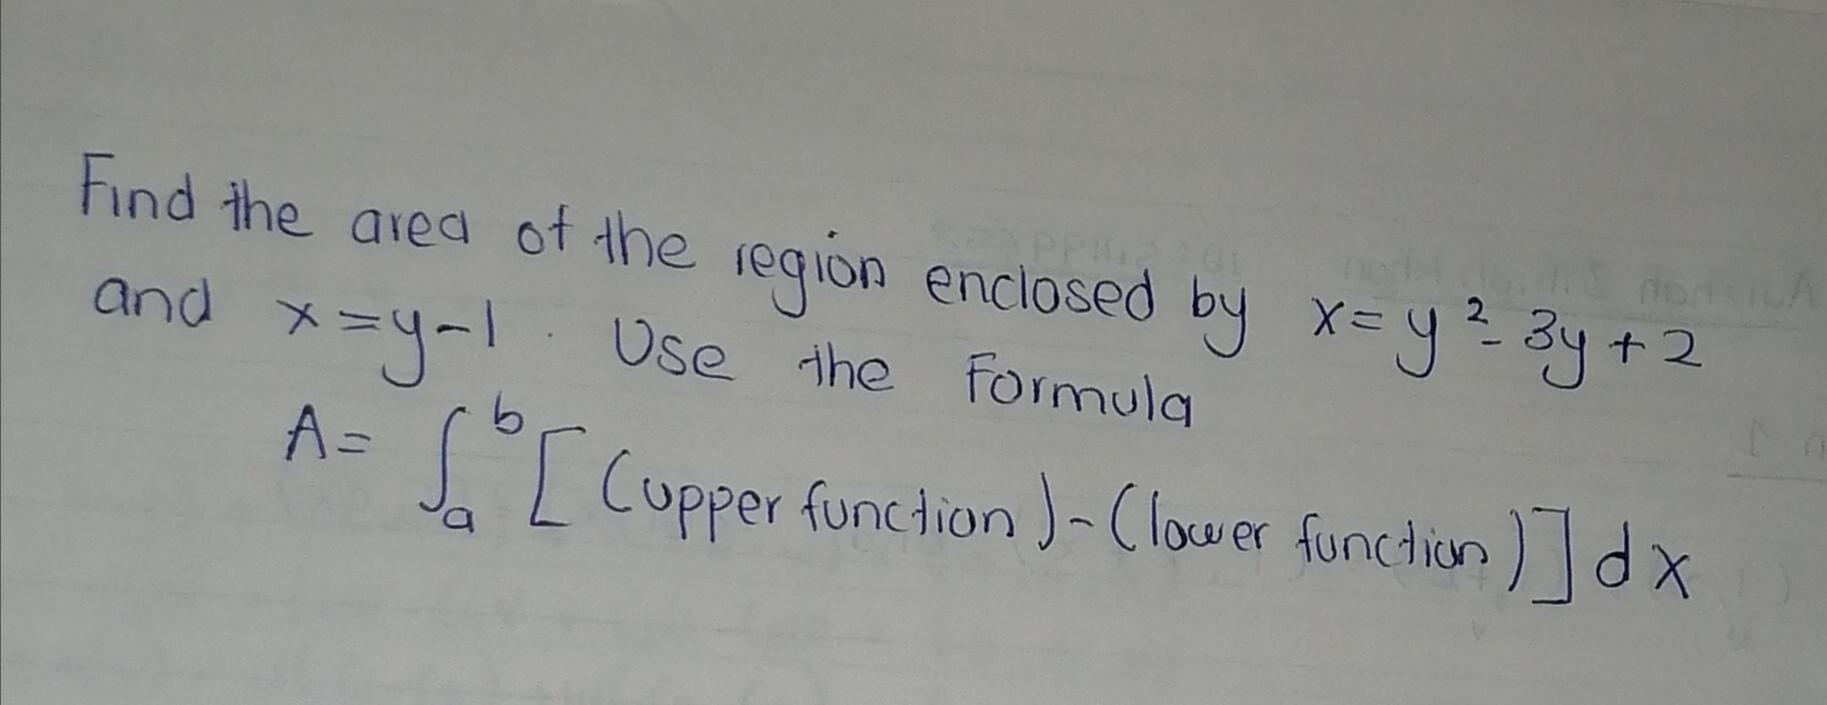 Find the area of the region enclosed by x = y² - 3y + 2
and x = y - 1. Use the Formula
A = ∫ₐᵇ [(upper function) - (lower function)] dx